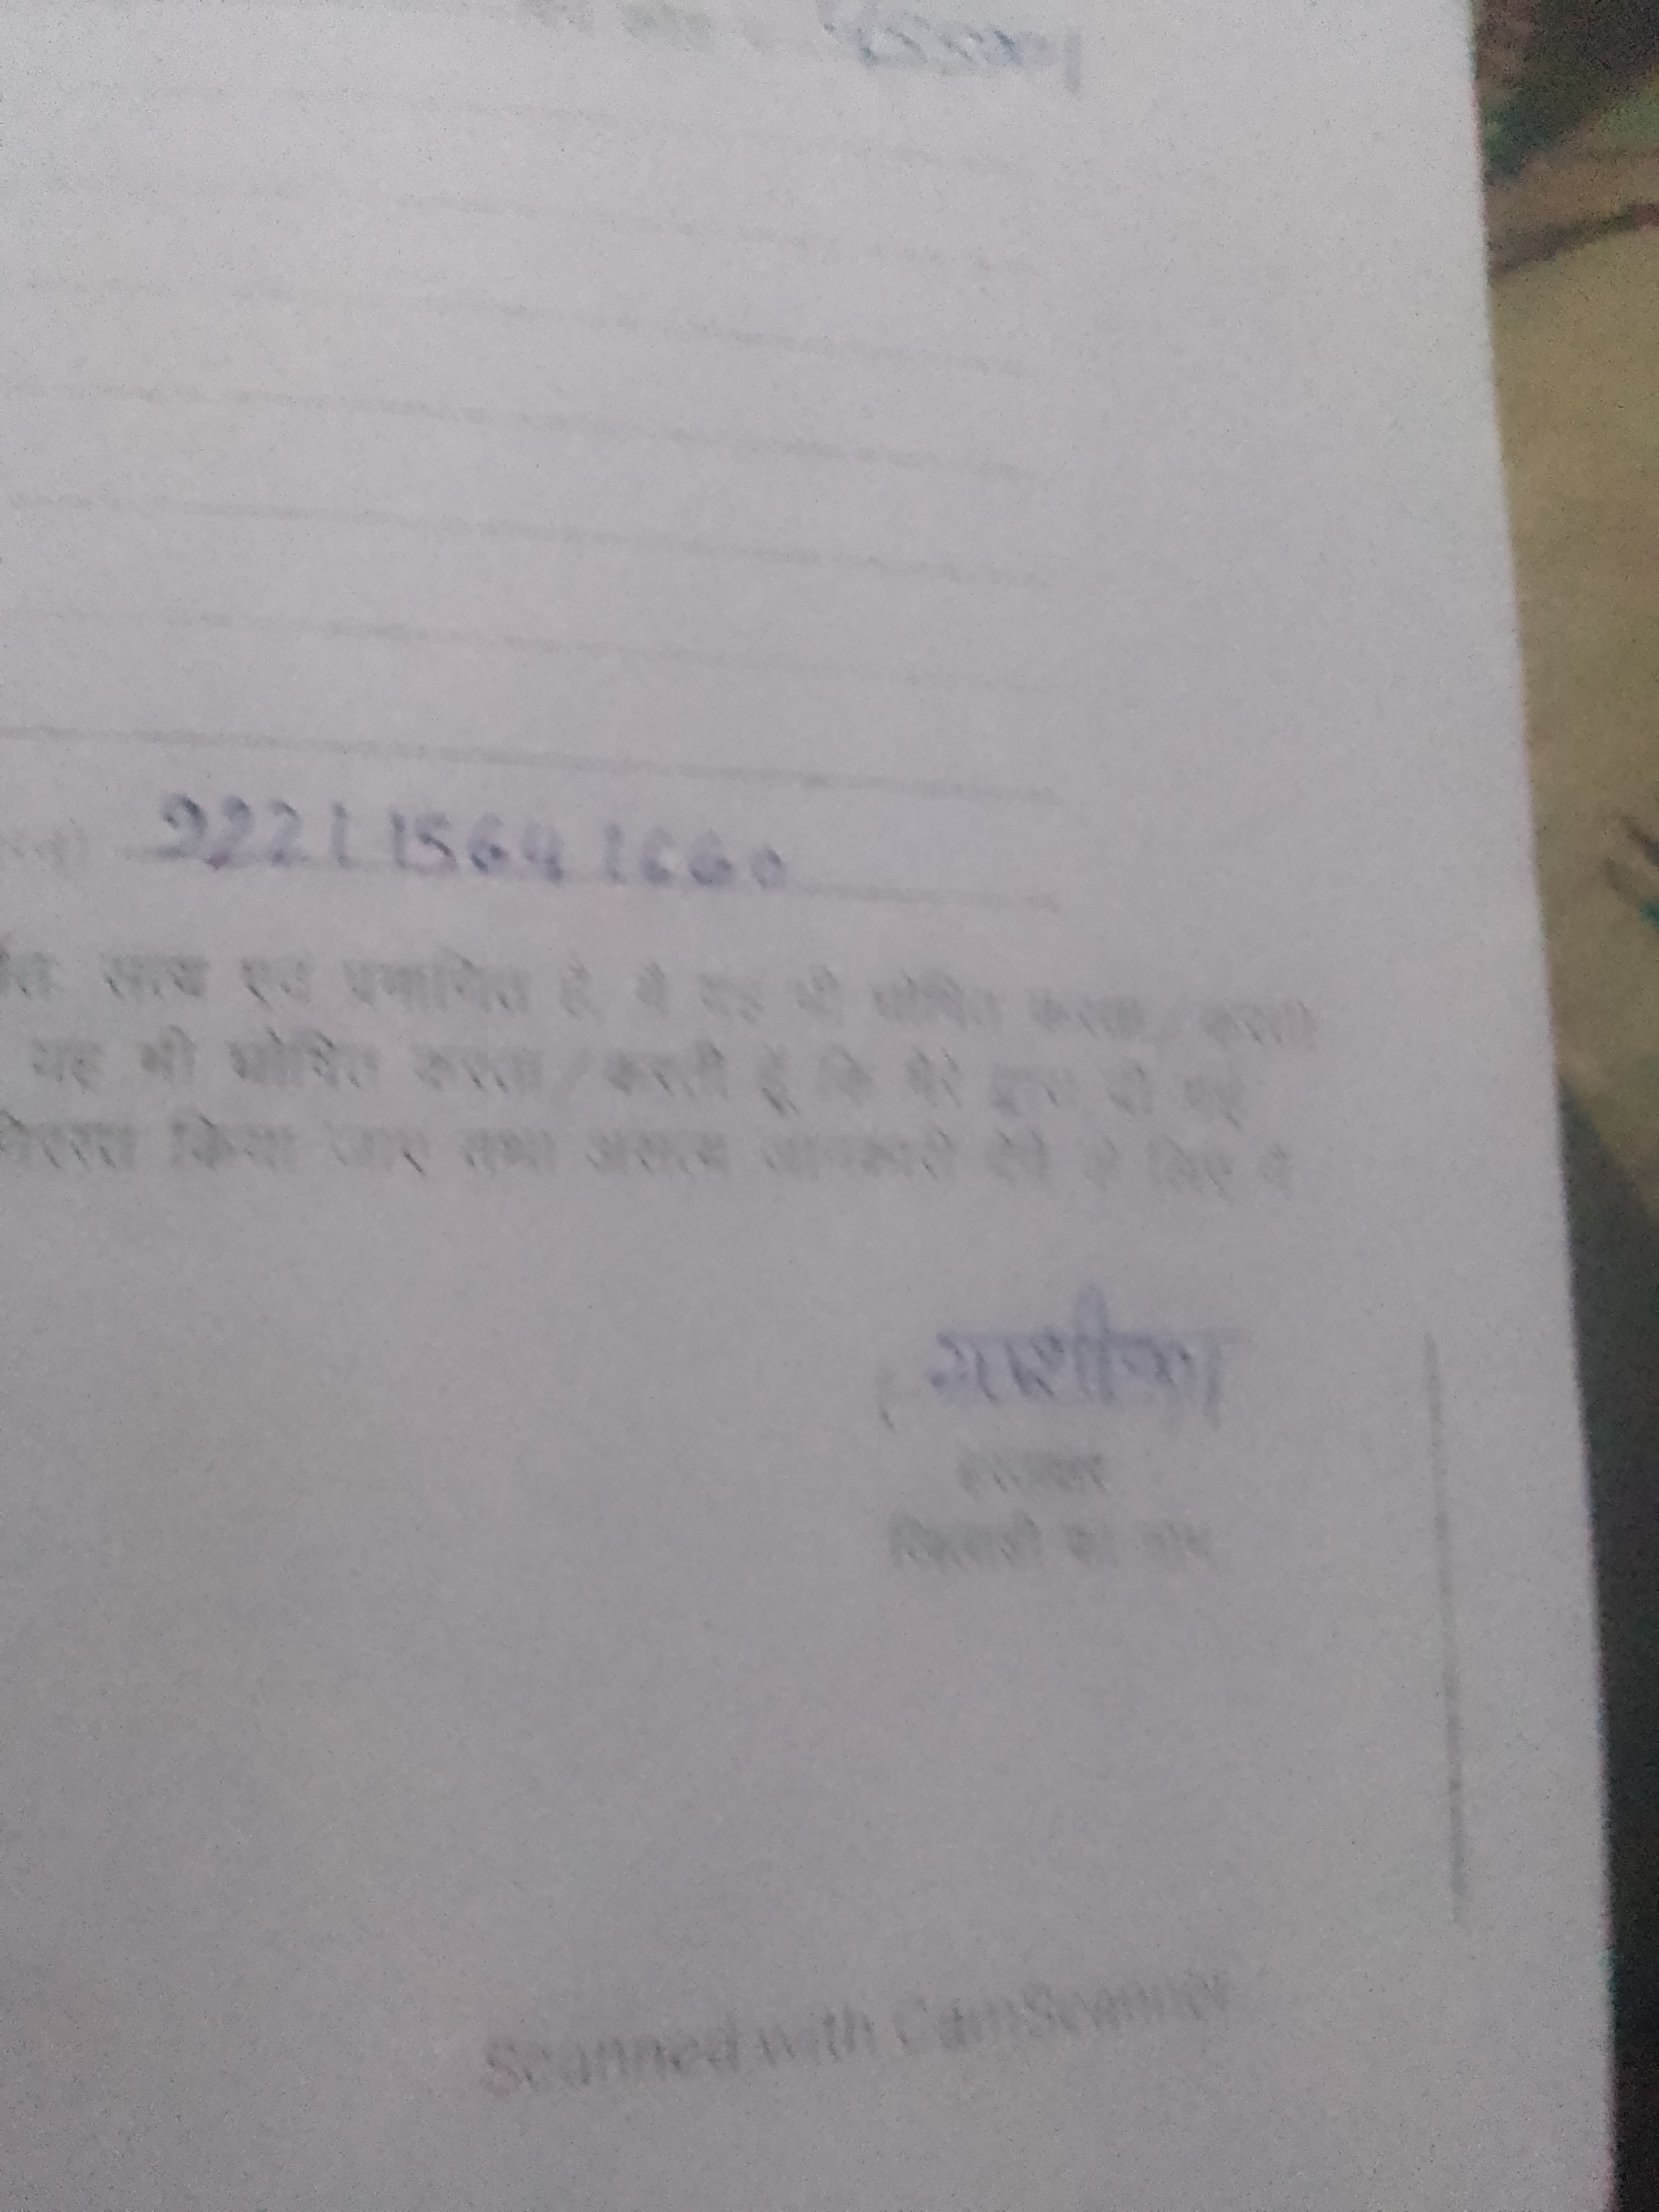 922115641660
सत्य एवं प्रमाणित है, मै यह भी घोषित करता/करती
यह भी घोषित करता/करती हूँ कि मेरे द्वारा दी गई
निरस्त किया जाए तथा असत्य जानकारी देने के लिए मै
हस्ताक्षर
खिलाडी का नाम
Scanned with CamScanner